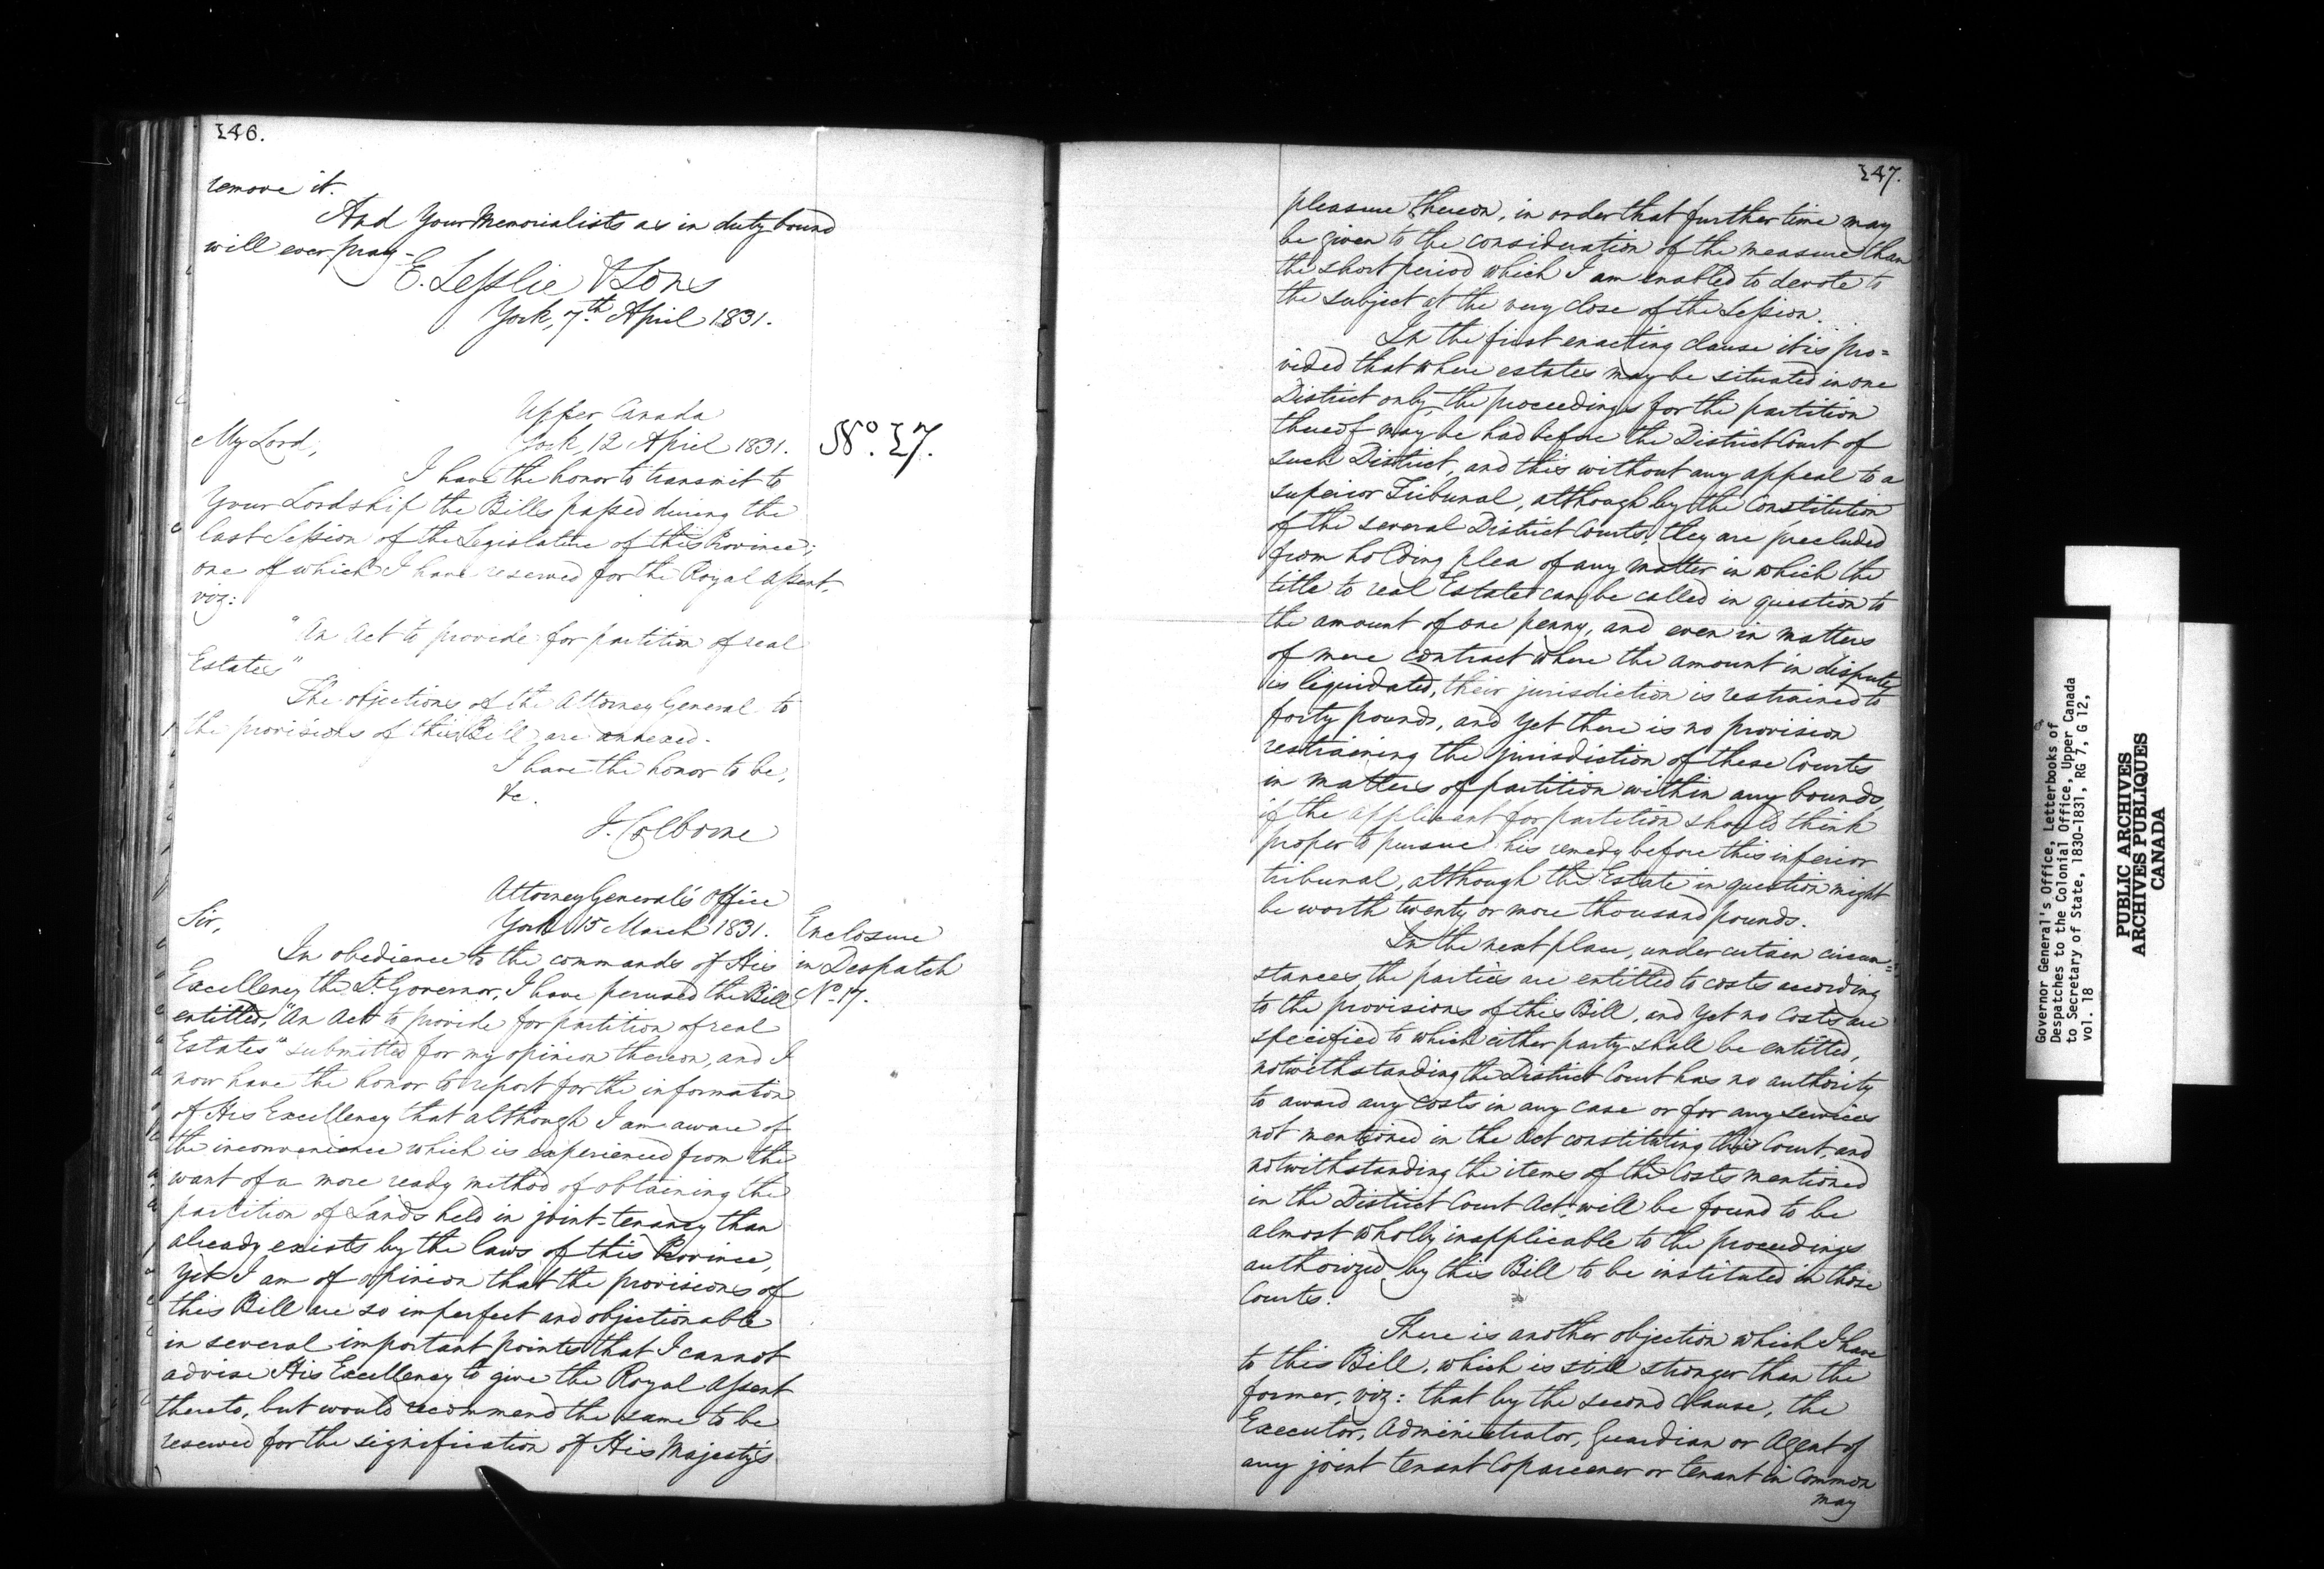 146.
remove it.
And Your Memorialists as in duty bound
will ever pray -
E. Lesslie & Sons
York, 7th April 1831.
Upper Canada
My Lord,
York, 12 April 1831.
No. 17.
I have the honor to transmit to
Your Lordship the Bills passed during the
last Session of the Legislature of this Province;
one of which I have reserved for the Royal assent,
viz:
"An Act to provide for partition of real
Estates"
The objections of the Attorney General to
the provisions of this Bill are annexed.
I have the honor to be,
&c.
J. Colborne
Attorney General's Office
Sir,
York 15 March 1831.
Enclosure
in Despatch
No. 17.
In obedience to the commands of His
Excellency the Lt. Governor, I have perused the Bill
entitled, "An Act to provide for partition of real
Estates" submitted for my opinion thereon, and I
now have the honor to report for the information
of His Excellency that although I am aware of
the inconvenience which is experienced from the
want of a more ready method of obtaining the
partition of Lands held in joint-tenancy than
already exists by the laws of this Province,
yet I am of opinion that the provisions of
this Bill are so imperfect and objectionable
in several important points that I cannot
advise His Excellency to give the Royal Assent
thereto, but would recommend the same to be
reserved for the signification of His Majesty's
147.
pleasure thereon, in order that further time may
be given to the consideration of the measure than
the short period which I am enabled to devote to
the subject at the very close of the Session.
In the first enacting clause it is pro=
vided that where estates may be situated in one
District only, the proceedings for the partition
thereof may be had before the District Court of
such District, and this without any appeal to a
superior Tribunal, although by the Constitution
of the several District Courts, they are precluded
from holding plea of any matter in which the
title to real Estate can be called in question to
the amount of one penny, and even in matters
of mere contract where the amount in dispute
is liquidated, their jurisdiction is restrained to
forty pounds, and yet there is no provision
restraining the jurisdiction of these Courts
in matters of partition within any bounds,
if the applicant for partition should think
proper to pursue his remedy before this inferior
tribunal, although the Estate in question might
be worth twenty or more thousand pounds.
In the next place, under certain circum=
stances, the parties are entitled to costs according
to the provisions of this Bill, and yet no Costs are
specified to which either party shall be entitled,
notwithstanding the District Court has no authority
to award any costs in any case or for any services
not mentioned in the Act constituting this Court, and
notwithstanding the items of the Costs mentioned
in the District Court Act will be found to be
almost wholly inapplicable to the proceedings
authorized by this Bill to be instituted in those
Courts.
There is another objection which I have
to this Bill, which is still stronger than the
former, viz: that by the second clause, the
Executor, Administrator, Guardian or Agent of
any joint tenant Coparcener or tenant in Common
may
Governor General's Office, Letterbooks of
Despatches to the Colonial Office, Upper Canada
to Secretary of State, 1830-1831, RG 7, G 12,
vol. 18
PUBLIC ARCHIVES
ARCHIVES PUBLIQUES
CANADA